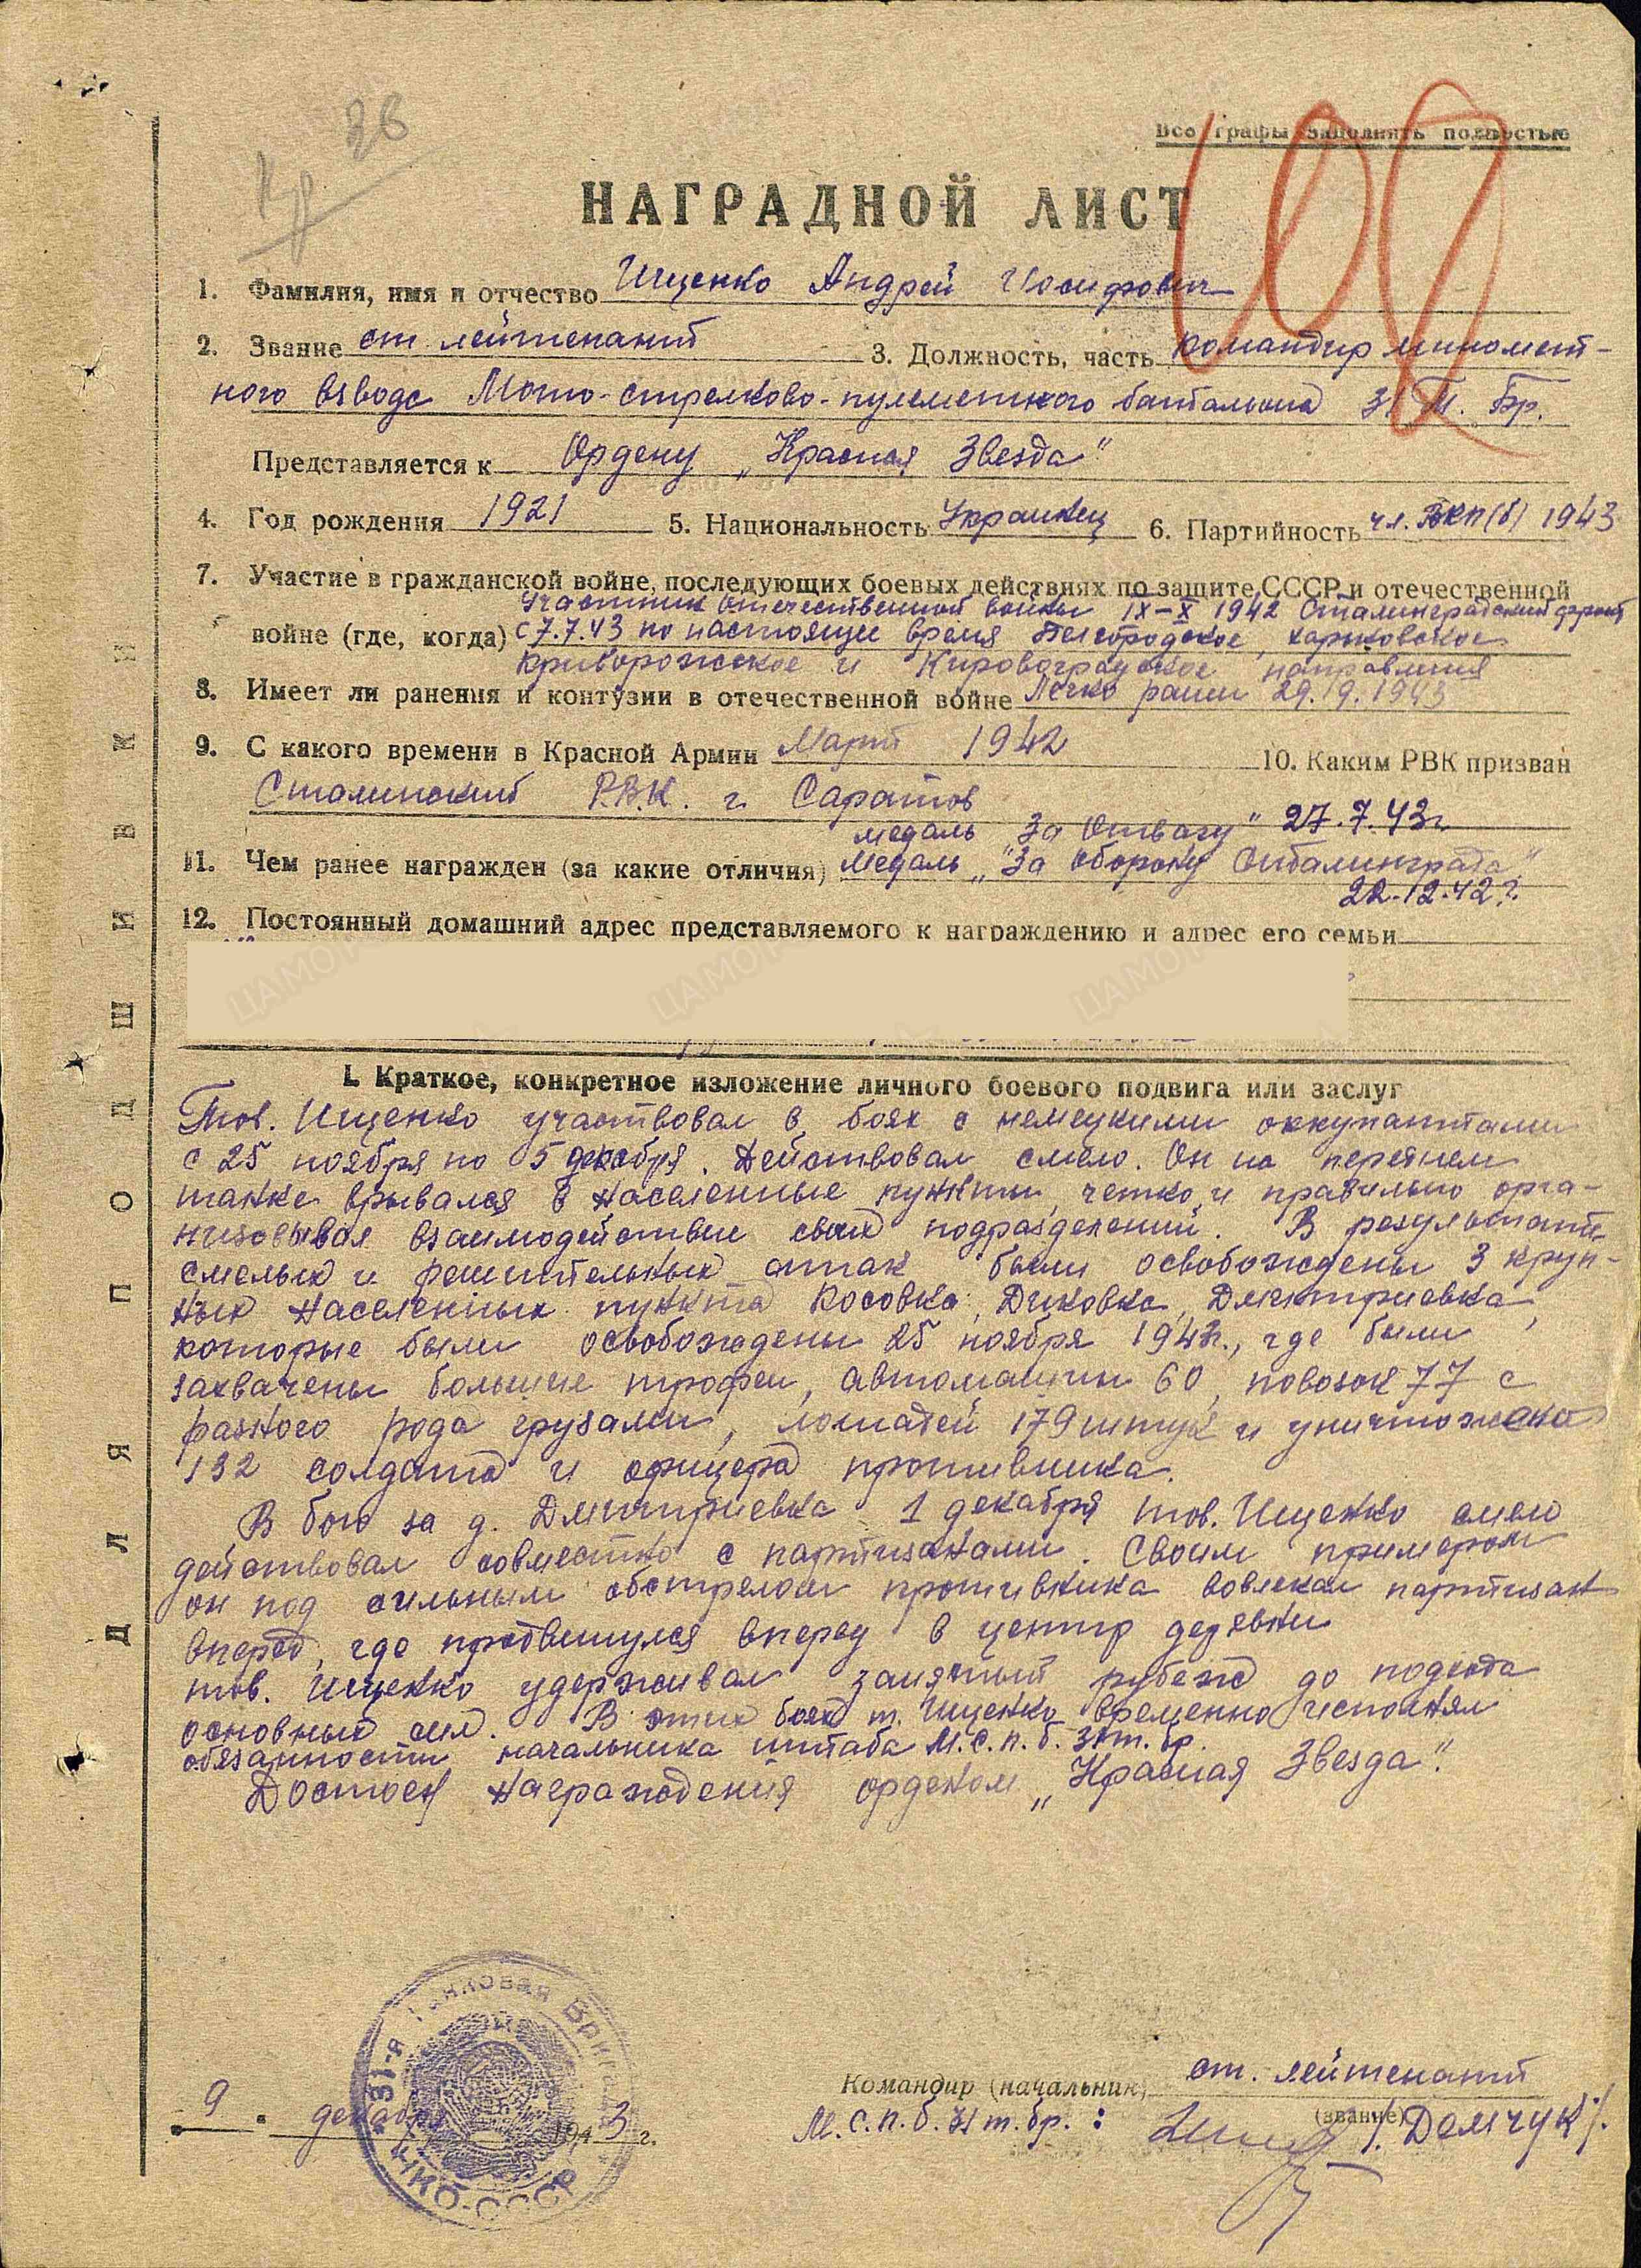 38
Все графы заполнять полностью
НАГРАДНОЙ ЛИСТ
1. Фамилия, имя и отчество Ищенко Андрей Иосифович
2. Звание ст. лейтенант 3. Должность, часть командир миномет-
ного взвода Мото-стрелково-пулеметного батальона 31 Т. Бр.
Представляется к Ордену „Красная Звезда"
4. Год рождения 1921 5. Национальность Украинец 6. Партийность чл. ВКП(б) 1943
7. Участие в гражданской войне, последующих боевых действиях по защите СССР и отечественной
участник отечественной войны IX-X 1942 Сталинградский фронт
войне (где, когда) с 7.7.43 по настоящее время Белгородское, харьковское
криворожское и Кировоградское направления
8. Имеет ли ранения и контузии в отечественной войне Легко ранен 29.9.1943
9. С какого времени в Красной Армии Март 1942 10. Каким РВК призван
Сталинский Р.В.К. г. Саратов
медаль „За Отвагу" 27.7.43г
11. Чем ранее награжден (за какие отличия) Медаль „За оборону Сталинграда"
22.12.42г.
12. Постоянный домашний адрес представляемого к награждению и адрес его семьи
I. Краткое, конкретное изложение личного боевого подвига или заслуг
Тов. Ищенко участвовал в боях с немецкими оккупантами
с 25 ноября по 5 декабря. Действовал смело. Он на переднем
танке врывался в населенные пункты, четко и правильно орга-
низовывая взаимодействие своих подразделений. В результате
смелых и решительных атак были освобождены 3 круп-
ных населенных пункта Косовка, Диковка, Дмитриевка,
которые были освобождены 25 ноября 1943г., где были
захвачены большие трофеи, автомашин 60, повозок 77 с
разного рода грузами, лошадей 179 штук и уничтожено
132 солдата и офицера противника.
В бою за д. Дмитриевка 1 декабря тов. Ищенко смело
действовал совместно с партизанами. Своим примером
он под сильным обстрелом противника вовлекал партизан
вперед, где продвинулся вперед в центр деревни
тов. Ищенко удерживал занятый рубеж до подхода
основных сил. В этих боях т. Ищенко временно исполнял
обязанности начальника штаба М.С.П.Б. 31 т. бр.
Достоен награждения орденом „Красная Звезда".
ДЛЯ ПОДШИВКИ
31-я Танковая Бригада
НКО-СССР
Командир (начальник) ст. лейтенант
(звание)
М.С.П.Б. 31 т. бр.: /Демчук/.
9 декабря 1943 г.